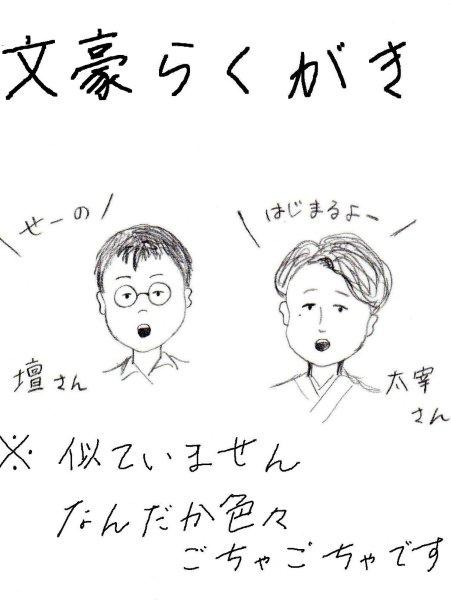 文豪らくがき
せーの
はじまるよー
壇さん
太宰
さん
※ 似ていません
なんだか色々
ごちゃごちゃです